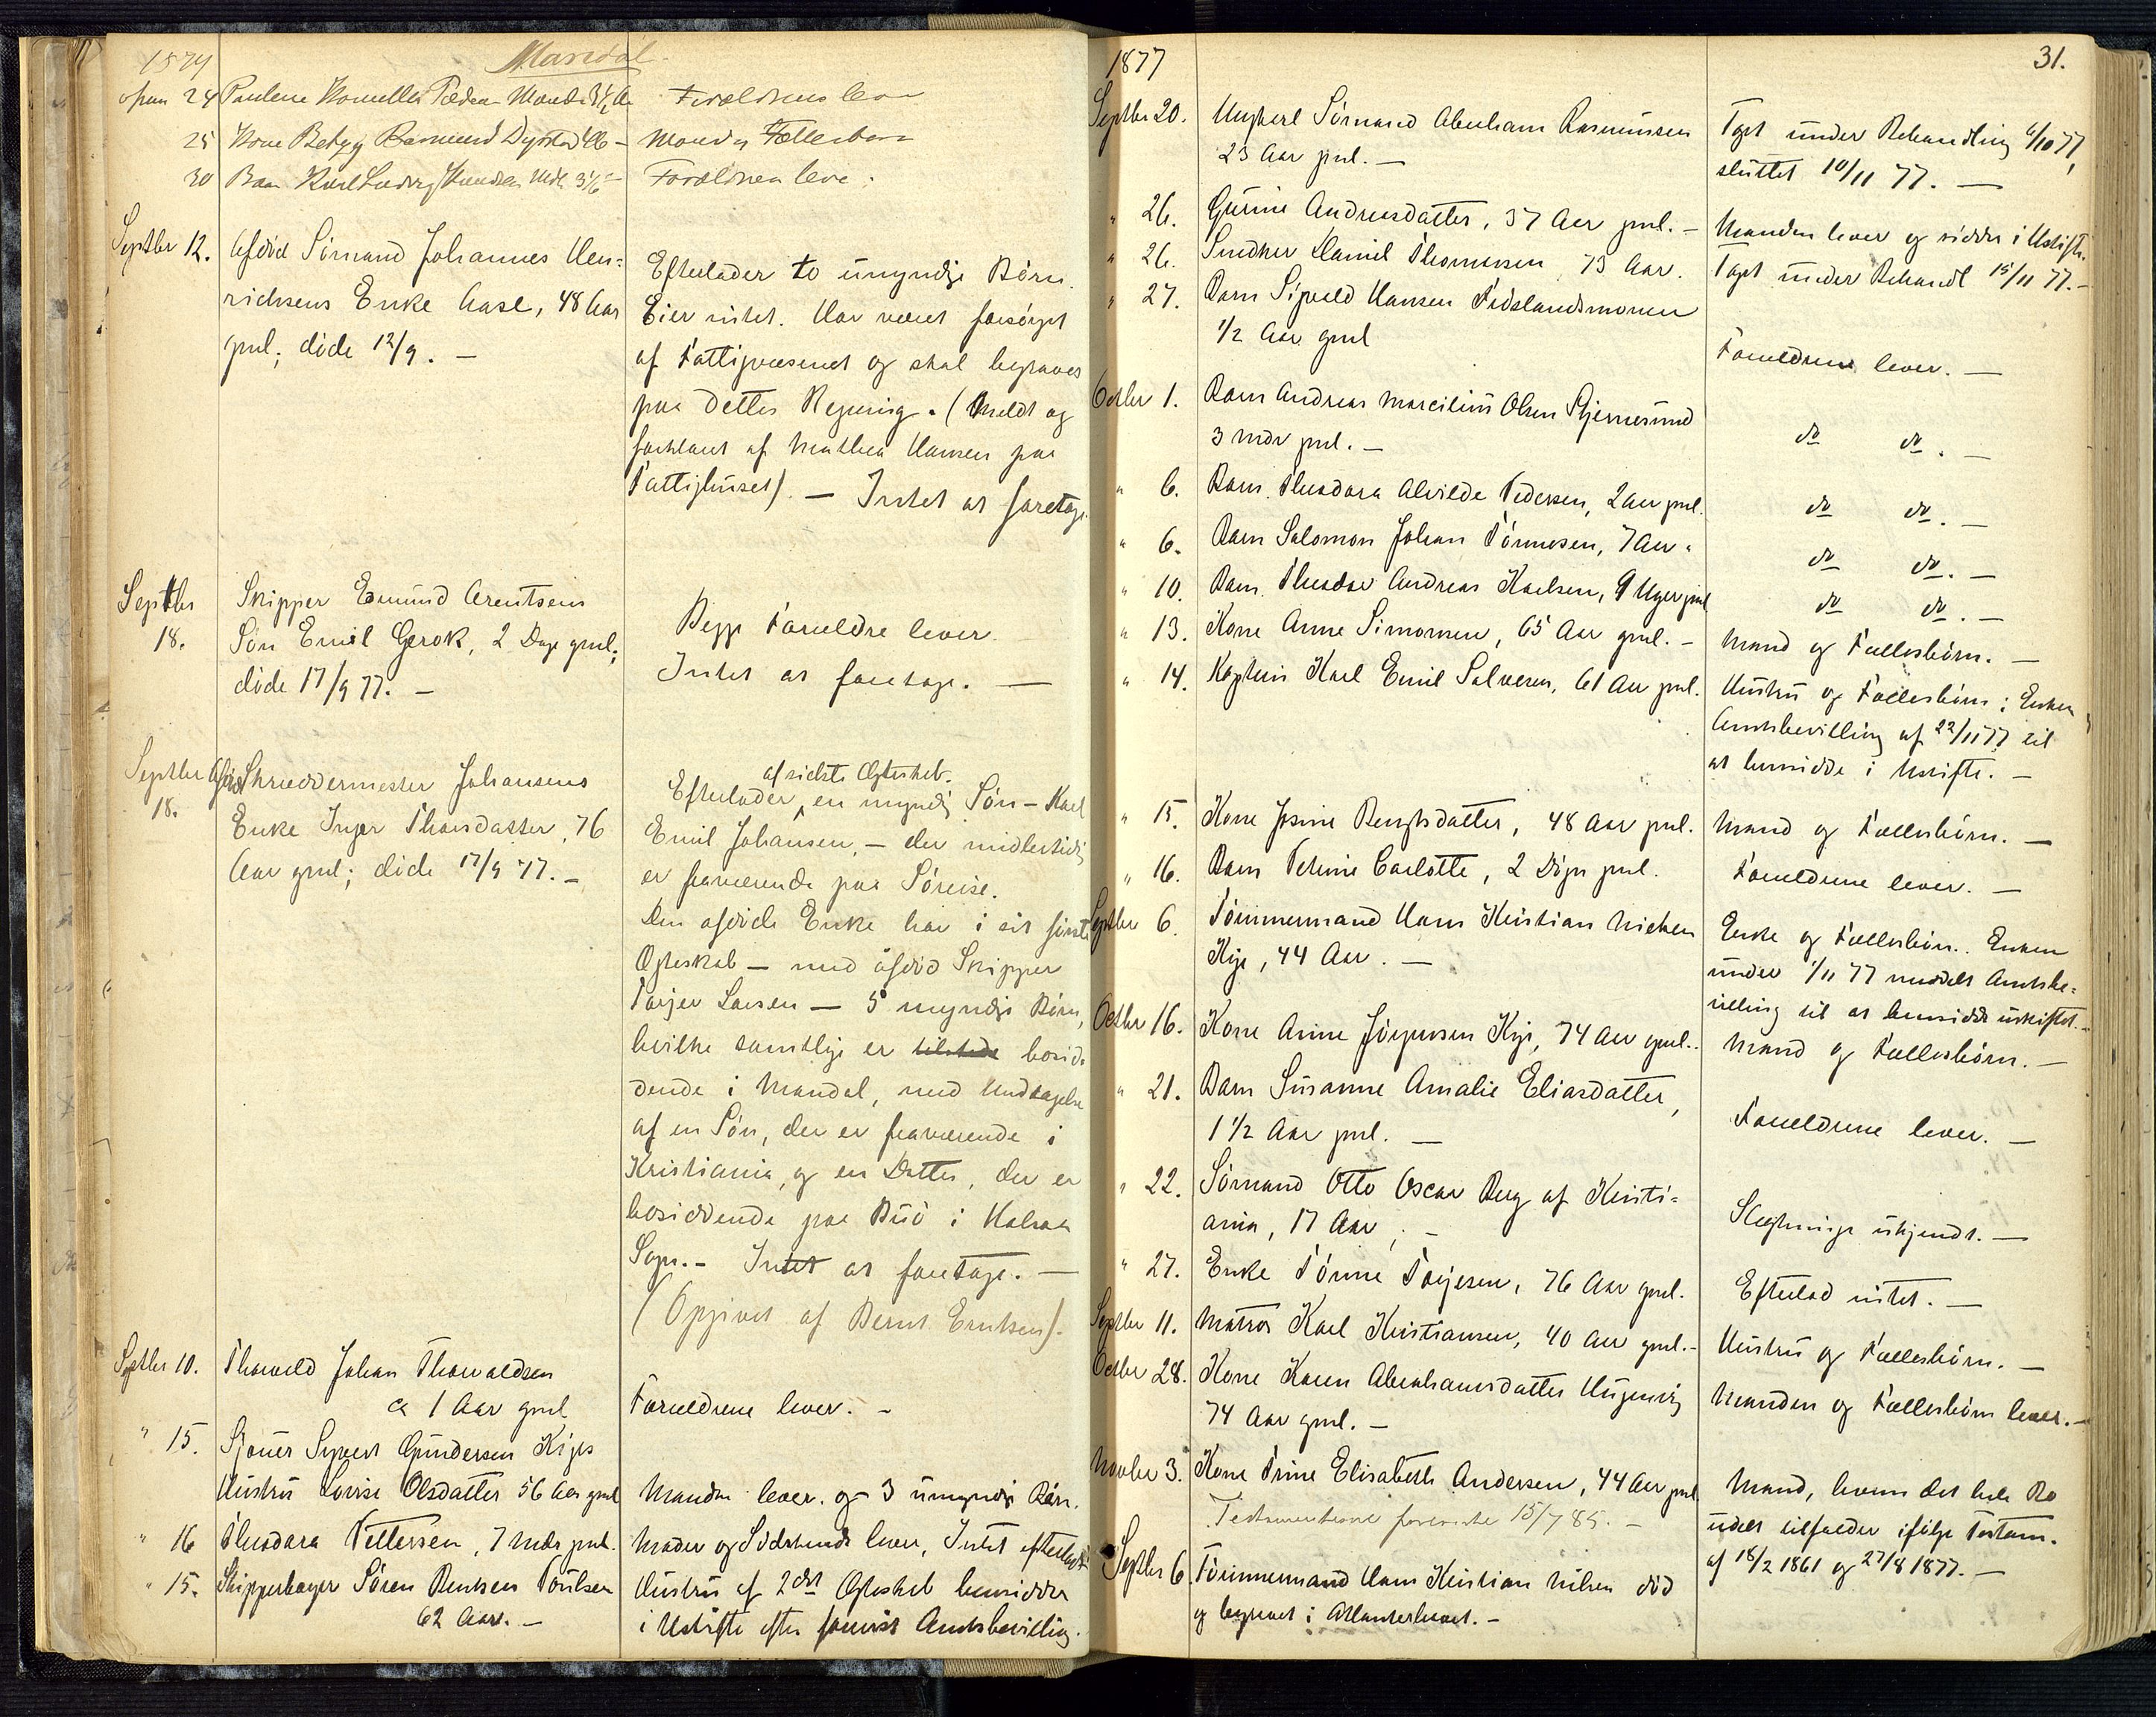 Mandal
24 Pauline
Forældrene lever
25 Kone Betzy Dyrstad 46 -
Mand & Fællesbørn
30 Barn Karl Ludvig Knudsen
Forældrene leve.
Septbr 12. Afdød Sömand Johannes Hen-
richsens Enke Aase, 48 Aar
gml; döde 12/9. -
Efterlader to umyndige Börn.
Eier intet. Har været forsörget
af Fattigvæsenet og skal begraves
paa dettes Regning. (Meldt og
forklaret af Mathea Hansen paa
Fattighuset). - Intet at foretage.
Septbr 18. Skipper Edmund Arentsens
Sön Emil Gerok, 2 Dage gml;
döde 17/9 77. -
Begge Forældre lever.
Intet at foretage. -
Septbr 18. Afdöd Skræddermester Johansens
Enke Inger Thorsdatter, 76
Aar gml; döde 17/9 77. -
af sidste Ægteskab.
Efterlader en myndig Sön - Karl
Emil Johansen, - der midlertidig
er fraværende paa Söreise.
Den afdöde Enke har i sit förste
Ægteskab - med afdöd Skipper
Torjer Larsen - 5 myndige Börn,
hvilke samtlige er bosid-
dende i Mandal, med Undtagelse
af en Sön, der er fraværende i
Kristiania, og en Datter, der er
bosiddende paa Buö i Halsaa
Sogn. - Intet at foretage. -
(Opgivet af Bernt Erntsen).
Septbr 10. Thorvald Johan Thorvaldsen
ca 1 Aar gml
Forældrene lever. -
" 15. Sjouer Sivert Gundersen Kiges
Hustru Lovise Olsdatter 56 Aar gml
Manden lever og 3 umyndige Börn.
" 16 Theodora Pettersen, 7 Mdr gml.
Moder og Södskende lever, Intet efterladt
" 15. Skipperborger Sören Bentsen Poulsen
62 Aar. -
Hustru af 2det Ægteskab hensidder
i Uskifte efter forevist Amtsbevilling.
1877
31.
Septbr 20. Ungkarl Sömand Abraham Rasmussen
23 Aar gml. -
Taget under Behandling 6/10 77,
sluttet 10/11 77. -
" 26. Gurine Andreasdatter, 37 Aar gml. -
Manden lever og sidder i Uskifte.
" 26. Snedker Daniel Thomassen, 73 Aar.
Taget under Behandl 15/11 77. -
" 27. Barn Sigvald Hansen Fidslandsmonen
1/2 Aar gml
Forældrene lever. -
Octbr 1. Barn Andreas Marcilius Olsen Skjernesund
3 Mdr gml. -
do do. -
" 6. Barn Theodora Alvilde Pedersen, 2 Aar gml.
do do. -
" 6. Barn Salomon Johan Tönnesen, 7 Aar "
do do. -
" 10. Barn Theodor Andreas Karlsen, 9 Uger gml
do do. -
" 13. Kone Anne Simonsen, 65 Aar gml. -
Mand og Fællesbörn. -
" 14. Kaptein Karl Emil Salvesen, 61 Aar gml.
Hustru og Fællesbörn; Enken
Amtsbevilling af 22/11 77 til
at hensidde i Uskifte. -
" 15. Kone Josine Bengtsdatter, 48 Aar gml.
Mand og Fællesbörn. -
" 16. Barn Petrine Carlotte, 2 Dage gml.
Forældrene lever. -
Septbr 6. Tömmermand Hans Kristian Nielsen
Kige, 44 Aar. -
Enke og Fællesbörn. Enken
under 1/11 77 meddelt Amtsbe-
villing til at hensidde uskiftet. -
Octbr 16. Kone Anne Jörgensen Kige, 74 Aar gml.
Mand og Fællesbörn. -
" 21. Barn Susanne Amalie Eliasdatter,
1 1/2 Aar gml. -
Forældrene lever. -
" 22. Sömand Otto Oscar Berg af Kristi-
ania, 17 Aar, -
Slægtninge ukjendt. -
" 27. Enke Tönne Torjesen, 76 Aar gml.
Efterlod intet. -
Septbr 11. Matros Karl Kristiansen, 40 Aar gml. -
Hustru og Fællesbörn. -
Octbr 28. Kone Karen Abrahamsdatter Ungenvig
74 Aar gml. -
Manden og Fællesbörn lever. -
Novbr 3. Kone Trine Elisabeth Andersen, 44 Aar gml
Testamenterne foreviste 15/7 85. -
Mand, hvem det hele Bo
udelt tilfalder ifölge Testam.
af 18/2 1861 og 27/8 1877. -
Septbr 6. Tömmermand Hans Kristian Nilsen död
og begravet i Atlanterhavet. -